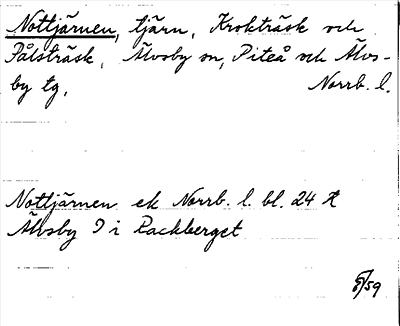 Nottjärnen, tjärn, Krokträsk och
Pålsträsk, Älvsby sn, Piteå och Älvs-
by tg, Norrb. l.
Nottjärnen ek Norrb. l. bl. 24
Älvsby 9 i Rackberget
/59